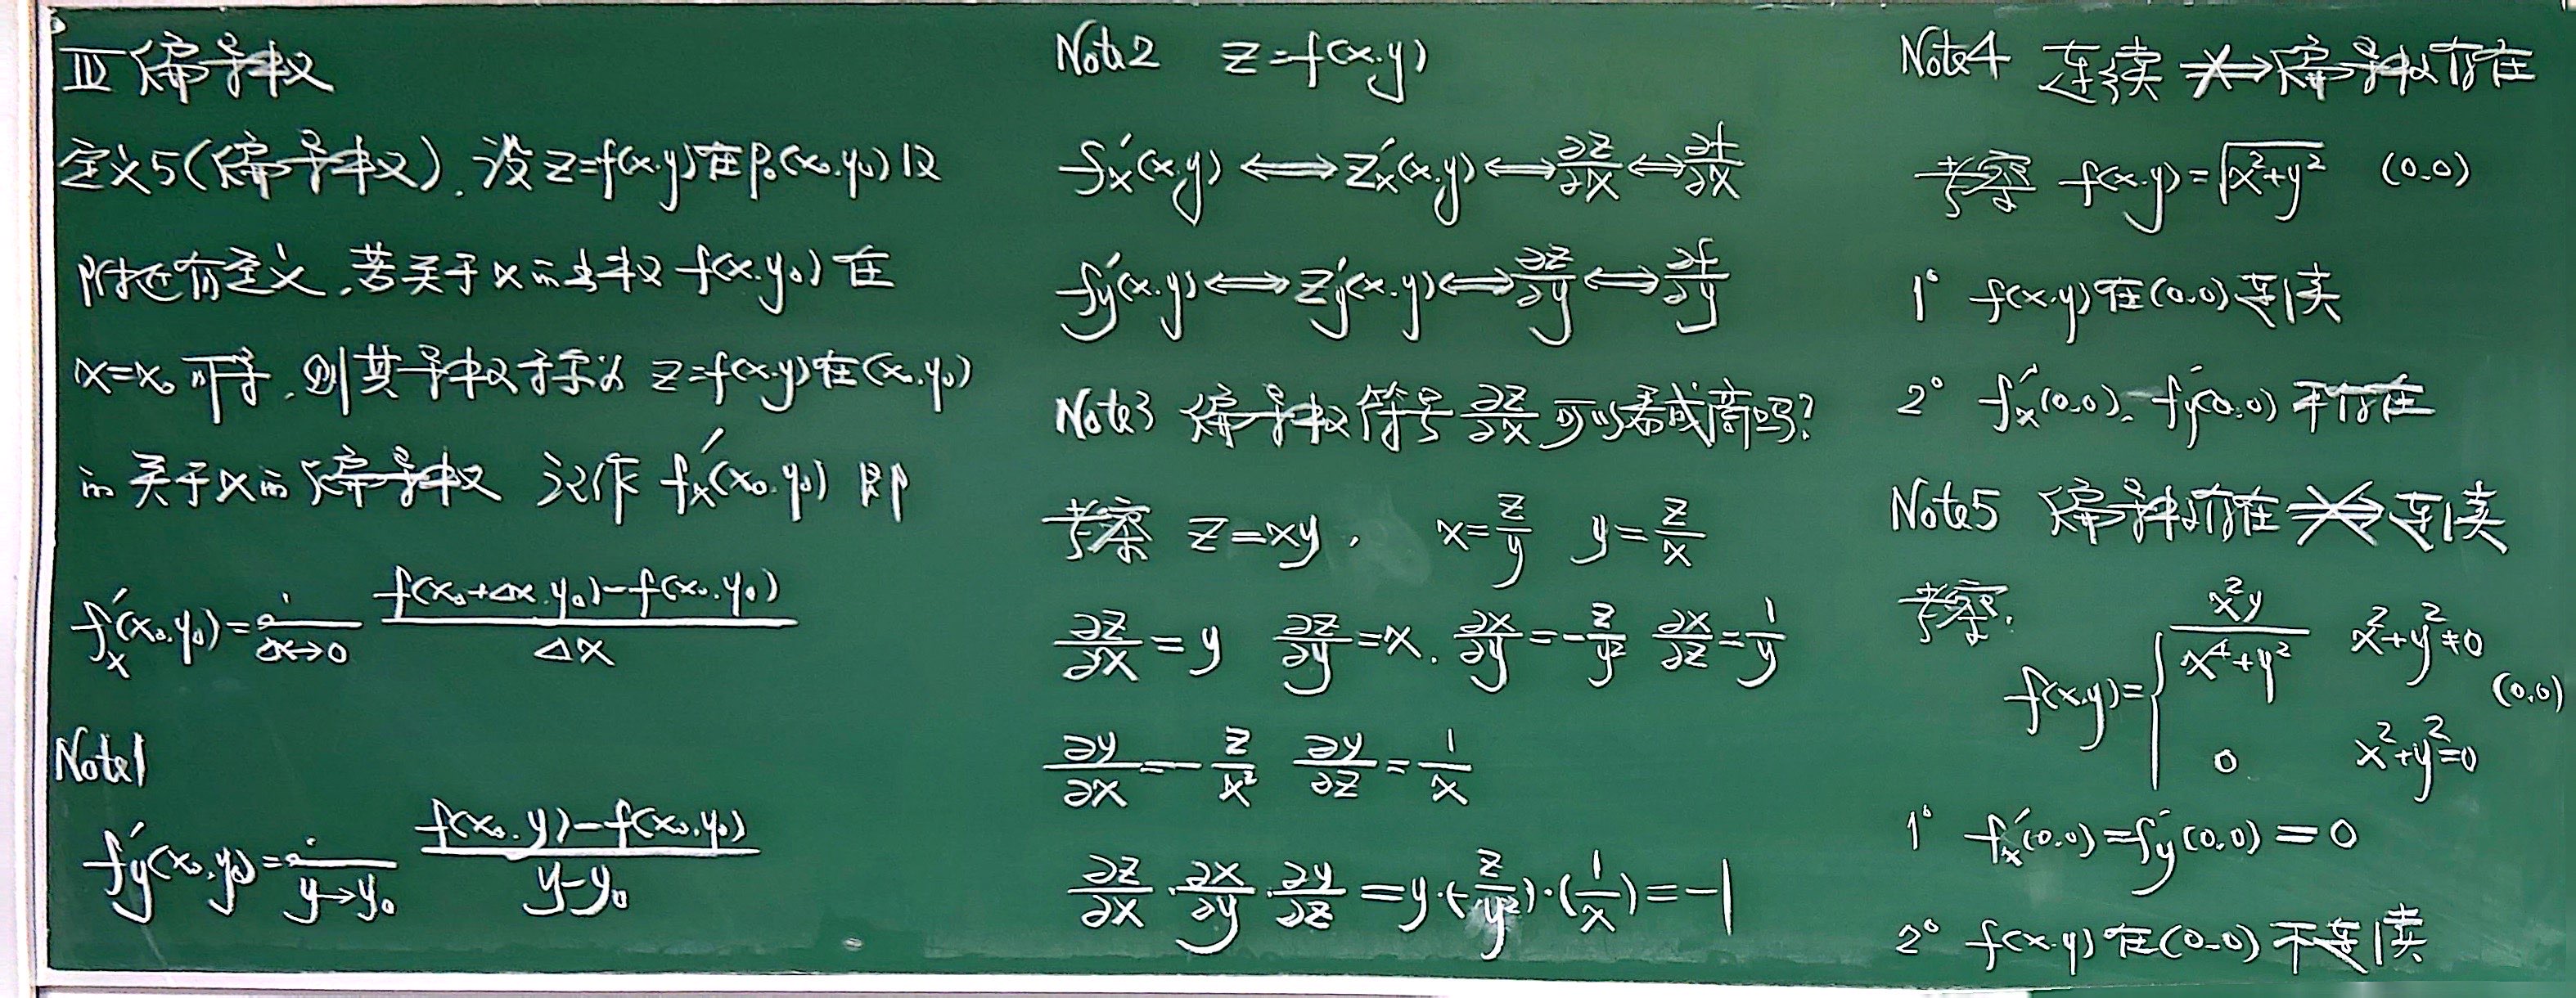 III 偏导数
定义5(偏导数). 设 z=f(x.y)在P₀(x₀.y₀)及
附近有定义.若关于x的函数 f(x.y₀)在
x=x₀可导.则其导数称为 z=f(x.y)在(x₀.y₀)
的关于x的偏导数 记作 f'ₓ(x₀.y₀) 即
f'ₓ(x₀.y₀)= lim_{Δx→0} (f(x₀+Δx.y₀)-f(x₀.y₀))/Δx
Note1
f'y(x₀.y₀)= lim_{y→y₀} (f(x₀.y)-f(x₀.y₀))/(y-y₀)
Note2 z=f(x.y)
f'ₓ(x.y)⟺z'ₓ(x.y)⟺∂z/∂x⟺∂f/∂x
f'y(x.y)⟺z'y(x.y)⟺∂z/∂y⟺∂f/∂y
Note3 偏导数符号 ∂z/∂x 可以看成商吗?
考察 z=xy. x=z/y y=z/x
∂z/∂x=y ∂z/∂y=x. ∂x/∂y=-z/y² ∂x/∂z=1/y
∂y/∂x=-z/x² ∂y/∂z=1/x
∂z/∂x·∂x/∂y·∂y/∂z=y·(-z/y²)·(1/x)=-1
Note4 连续 ⇎ 偏导数存在
考察 f(x.y)=√(x²+y²) (0.0)
1° f(x.y)在(0.0)连续
2° f'ₓ(0.0)、f'y(0.0) 不存在
Note5 偏导数存在 ⇎ 连续
考察.
f(x.y)={ x²y/(x⁴+y²) x²+y²≠0
(0.0)
0 x²+y²=0
1° f'ₓ(0.0)=f'y(0.0)=0
2° f(x.y)在(0.0)不连续